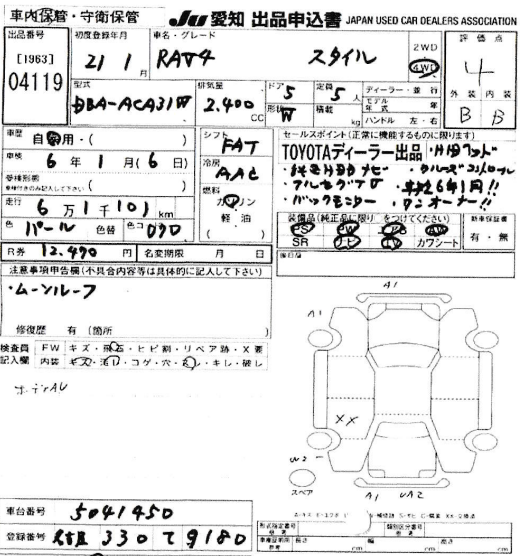 車内保管・守衛保管
JU 愛知 出品申込書 JAPAN USED CAR DEALERS ASSOCIATION
出品番号 初度登録年月 車名・グレード 評価点
[1963] 21年 1月 RAV4 スタイル 2WD 4WD 4
04119
型式 排気量 ドア 定員 ディーラー・並行 外装 内装
DBA-ACA31W 2.400 CC 5 5人 モデル年式 年 B B
形状 W 積載 kg ハンドル 左・右
車歴 自家用・( ) シフト FAT セールスポイント(正常に機能するものに限ります)
TOYOTAディーラー出品 ・HIDヘッド
車検 6年 1月 (6日) 冷房 AAC
・純正HDDナビ ・クルーズコントロール
受検形態 車検付きのみ記入して下さい ( ) 燃料 ガソリン 軽油
・フルセグTV ・車検6年1月!!
・バックモニター ・ワンオーナー!!
走行 6万1千101km
色 パール 色替 色コ 070
装備品(純正品に限り○をつけてください) 新車保証書
PS PW AW
SR カワシート 有・無
R券 12.490円 名変期限 月 日
後日品
注意事項申告欄(不具合内容等は具体的に記入して下さい)
・ムーンルーフ
修復歴 有 (箇所
検査員記入欄 FW キズ・飛石・ヒビ割・リペア跡・X要
内装 キズ・汚れ・コゲ・穴・スレ・キレ・破し
A1
A1
XX
W2
スペア
A1 UA2
車台番号 5041450
登録番号 名古屋 330 て 9180
形式指定番号 類別区分番号
長さ cm 幅 cm 高さ cm